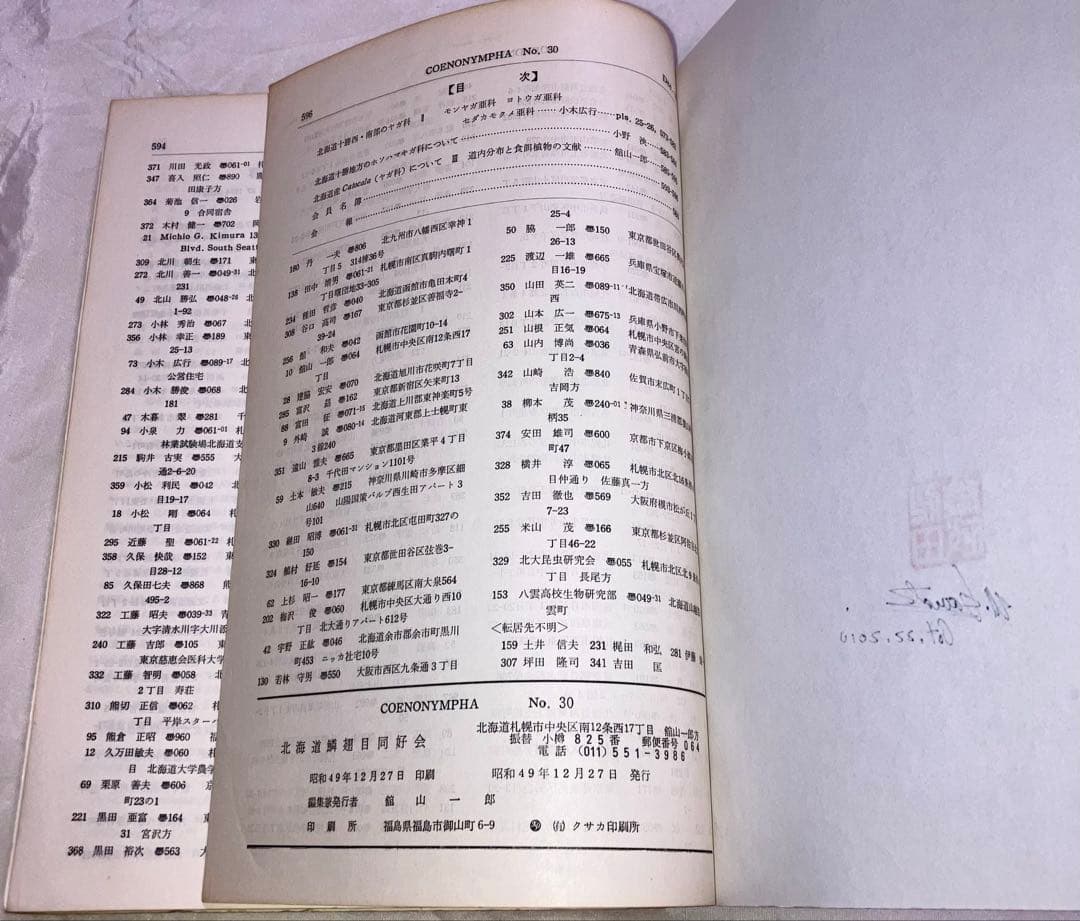 594
371 川田 光政 〠061-01 札
347 喜入 照仁 〠890
田康子方
364 菊池 信一 〠026
9 合同宿舎
372 木村 健一 〠702
21 Michio G. Kimura 13
Blvd. South Seatt
309 北川 朝生 〠171 東
272 北川 善一 〠049-31
231
49 北山 勝弘 〠048-26
1-92
273 小林 秀治 〠067
356 小林 幸正 〠189 東
25-13
73 小木 広行 〠089-17 北
公営住宅
284 小木 勝俊 〠068 北
181
47 木暮 翠 〠281 千
94 小泉 力 〠061-01 札
林業試験場北海道支
215 駒井 古実 〠555 大
通2-6-20
359 小松 利民 〠042 北
目19-17
18 小松 剛 〠064 札
丁目
295 近藤 聖 〠061-22 札
358 久保 快哉 〠152 東
目28-12
85 久保田七夫 〠868 熊
495-2
322 工藤 昭夫 〠039-33 青
大字清水川字大川添
240 工藤 吉郎 〠105 東
東京慈恵会医科大学
332 工藤 智明 〠058 北
2丁目 寿荘
310 熊切 正信 〠062 札
丁目 平岸スター
95 熊倉 正昭 〠960 福
12 久万田敏夫 〠060 札
目 北海道大学農学
69 栗原 善夫 〠606 京
町23の1
221 黒田 亜富 〠164 東
31 宮沢方
368 黒田 裕次 〠563 大
596
COENONYMPHA No. 30
【目 次】
北海道十勝西・南部のヤガ科 Ⅱ モンヤガ亜科 ヨトウガ亜科
セダカモクメ亜科……小木広行……pls. 25-26,
北海道十勝地方のホソハマキガ科について……小野 決
北海道産Catocala(ヤガ科)について Ⅲ 道内分布と食餌植物の文献……舘山一郎
会員名簿
会 報
180 丹 一夫 〠806 北九州市八幡西区幸神1
丁目5 314棟36号
138 田中 靖男 〠061-21 札幌市南区真駒内曙町1
丁目曙団地33-305
234 種田 哲彦 〠040 北海道函館市亀田本町4
308 谷口 高司 〠167 東京都杉並区善福寺2-
39-24
256 舘 和夫 〠042 函館市花園町10-14
10 舘山 一郎 〠064 札幌市中央区南12条西17
丁目
28 建脇 宏安 〠070 北海道旭川市花咲町7丁目
285 富沢 昌 〠162 東京都新宿区矢来町13
88 富田 征 〠071-15 北海道上川郡東神楽町5号
9 外崎 誠 〠080-14 北海道河東郡上士幌町東
3線240
351 遠山 雅夫 〠665 東京都墨田区業平4丁目
8-3 千代田マンション1101号
59 土本 敏夫 〠215 神奈川県川崎市多摩区細
山640 山陽国策パルプ西生田アパート3
号101
330 継田 昭博 〠061-31 札幌市北区屯田町327の
150
324 鶴村 好延 〠154 東京都世田谷区弦巻3-
16-10
62 上杉 昭一 〠177 東京都練馬区南大泉564
202 梅沢 俊 〠060 札幌市中央区大通り西10
丁目 北大通りアパート612号
42 宇野 正紘 〠046 北海道余市郡余市町黒川
町453 ニッカ社宅10号
130 若林 守男 〠550 大阪市西区九条通3丁目
25-4
50 脇 一郎 〠150 東京都世田谷区
26-13
225 渡辺 一雄 〠665 兵庫県宝塚市
目16-19
350 山田 英二 〠089-11 北海道帯広市
西
302 山本 広一 〠675-13 兵庫県小野市
251 山根 正気 〠064 札幌市中央区宮の
63 山内 博尚 〠036 青森県弘前市大字
丁目2-4
342 山崎 浩 〠840 佐賀市末広町1丁目
吉岡方
38 柳本 茂 〠240-01 神奈川県三浦郡葉山
柄35
374 安田 雄司 〠600 京都市下京区梅小路
町47
328 横井 淳 〠065 札幌市北区北16条
目仲通り 佐藤真一方
352 吉田 徹也 〠569 大阪府根市松が丘1丁
7-23
255 米山 茂 〠166 東京都杉並区阿佐谷
丁目46-22
329 北大昆虫研究会 〠055 札幌市北区北9条
丁目 長尾方
153 八雲高校生物研究部 〠049-31 北海道山越郡
雲町
＜転居先不明＞
159 土井 信夫 231 梶田 和弘 281 伊藤
307 坪田 隆司 341 吉田 匡
COENONYMPHA No. 30
北海道鱗翅目同好会
北海道札幌市中央区南12条西17丁目 舘山一郎方
振替 小樽 825番 郵便番号 064
電話 (011) 551-3986
昭和49年12月27日 印刷 昭和49年12月27日 発行
編集兼発行者 舘山一郎
印刷所 福島県福島市御山町6-9 (有) クサカ印刷所